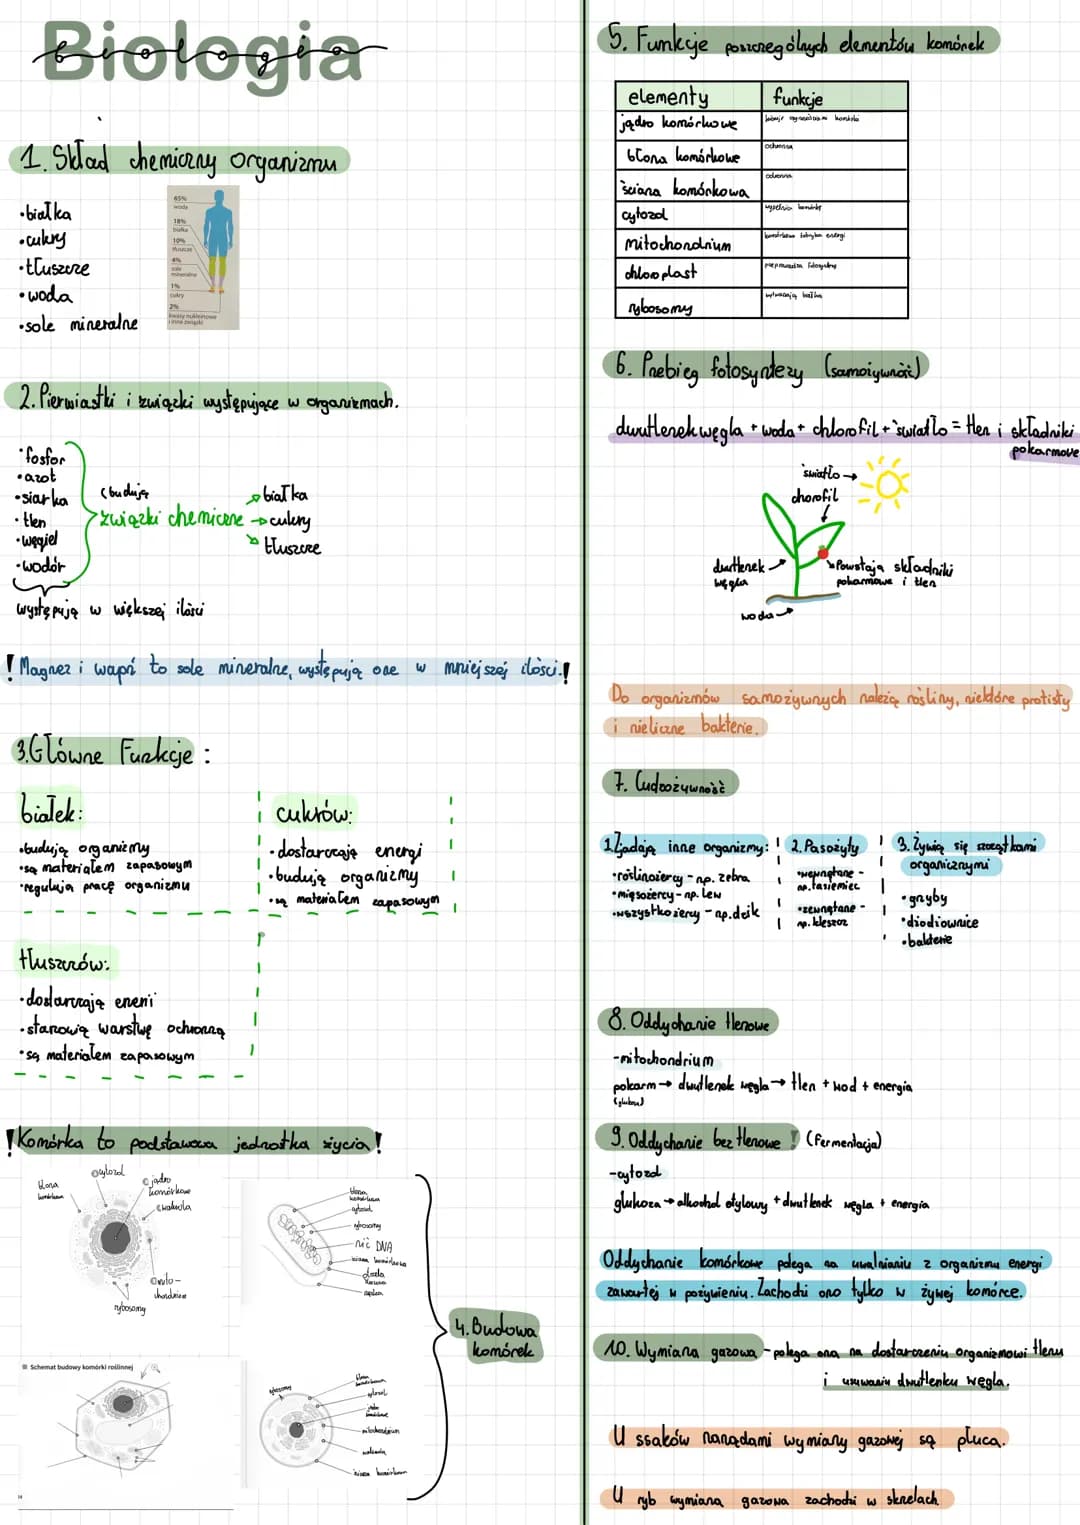 Biologia
biologia
1. Skład chemiczny organizmu
•białka
•cukry
•tłuszcze
•woda
•sole mineralne
65%
woda
18%
białka
10%
tłuszcze
4%
sole
mineralne
1%
cukry
2%
kwasy nukleinowe
i inne związki
2. Pierwiastki i związki występujące w organizmach.
•fosfor
•azot
•siarka
•tlen
•węgiel
•wodór
(budują
związki chemiczne
białka
cukry
tłuszcze
występują w większej ilości
! Magnez i wapń to sole mineralne, występują one w mniejszej ilości.!
3. Główne Funkcje :
białek:
•budują organizmy
•są materiałem zapasowym
•regulują pracę organizmu
cukrów:
•dostarczają energi
•budują organizmy
•są materiałem zapasowym
tłuszczów:
•dostarczają eneri
•stanowią warstwę ochronną
•są materiałem zapasowym
! Komórka to podstawowa jednostka życia!
błona
komórkowa
cytozol
jądro
komórkowe
wakuola
mito-
chondrium
rybosomy
błona
komórkowa
cytozol
rybosomy
nić DNA
ściana komórkowa
Schemat budowy komórki roślinnej
rybosomy
błona
komórkowa
cytozol
jądro
komórkowe
mitochondrium
wakuola
ściana komórkowa
4. Budowa
komórek
5. Funkcje poszczególnych elementów komórek
elementy funkcje
jądro komórkowe
błona komórkowa ochronna
ściana komórkowa ochronna
cytozol wypełnia komórkę
mitochondrium komórkowa fabryka energi
chloroplast przeprowadza fotosyntezę
rybosomy wytwarzają białka
6. Przebieg fotosyntezy (samożywność)
dwutlenek węgla + woda + chlorofil + światło = tlen i składniki
pokarmowe
światło →
chorofil
dwutlenek
węgla
Powstają składniki
pokarmowe i tlen
woda
Do organizmów samożywnych należą rośliny, niektóre protisty
i nieliczne bakterie.
7. Cudzożywność
1. Zjadają inne organizmy:
•roślinożercy - np. zebra
•mięsożercy - np. lew
•wszystkożercy - np. dzik
2. Pasożyty
•wewnętrzne -
np. tasiemiec
•zewnętrzne -
np. kleszcz
3. Żywią się szczątkami
organicznymi
•grzyby
•dżdżownice
•bakterie
8. Oddychanie tlenowe
-mitochondrium
pokarm → dwutlenek węgla → tlen + wod + energia
(glukoza)
9. Oddychanie beztlenowe (fermentacja)
-cytozol
glukoza → alkohol etylowy + dwutlenek węgla + energia
Oddychanie komórkowe polega na uwalnianiu z organizmu energi
zawartej w pożywieniu. Zachodzi ono tylko w żywej komórce.
10. Wymiana gazowa - polega ona na dostarczeniu organizmowi tlenu
i usuwaniu dwutlenku węgla.
U ssaków narządami wymiany gazowej są płuca.
U ryb wymiana gazowa zachodzi w skrzelach